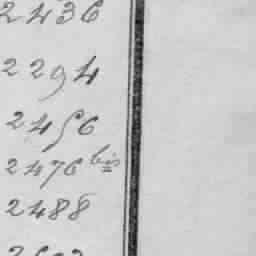 2436
2294
2456
2476 bis
2488